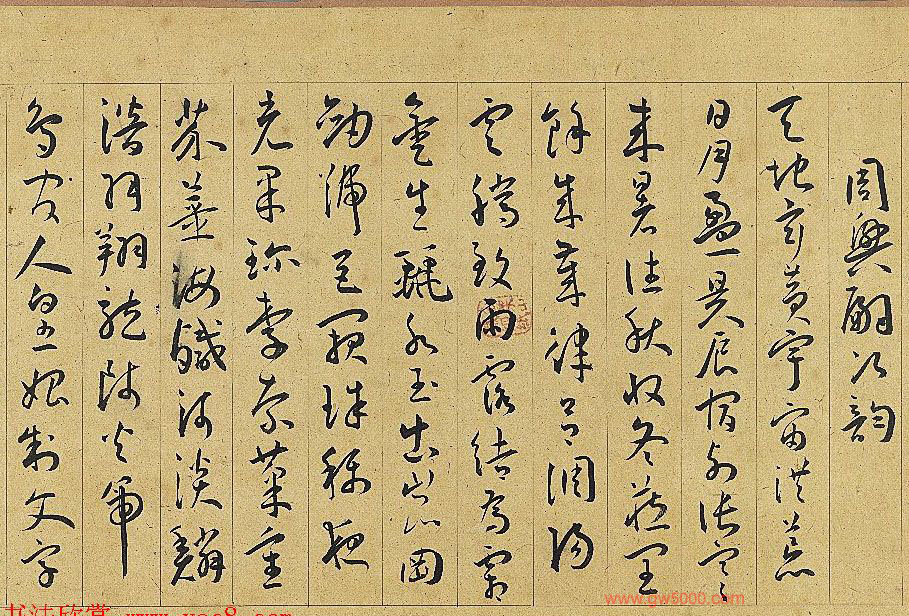 周興嗣次韻
天地玄黃宇宙洪荒
日月盈昃辰宿列張寒
來暑往秋收冬藏閏
餘成歲律呂調陽
雲騰致雨露結為霜
金生麗水玉出崑岡
劍號巨闕珠稱夜
光果珍李柰菜重
芥薑海鹹河淡鱗
潛羽翔龍師火帝
鳥官人皇始制文字
书法欣赏 www.yac8.com
www.gw5000.com